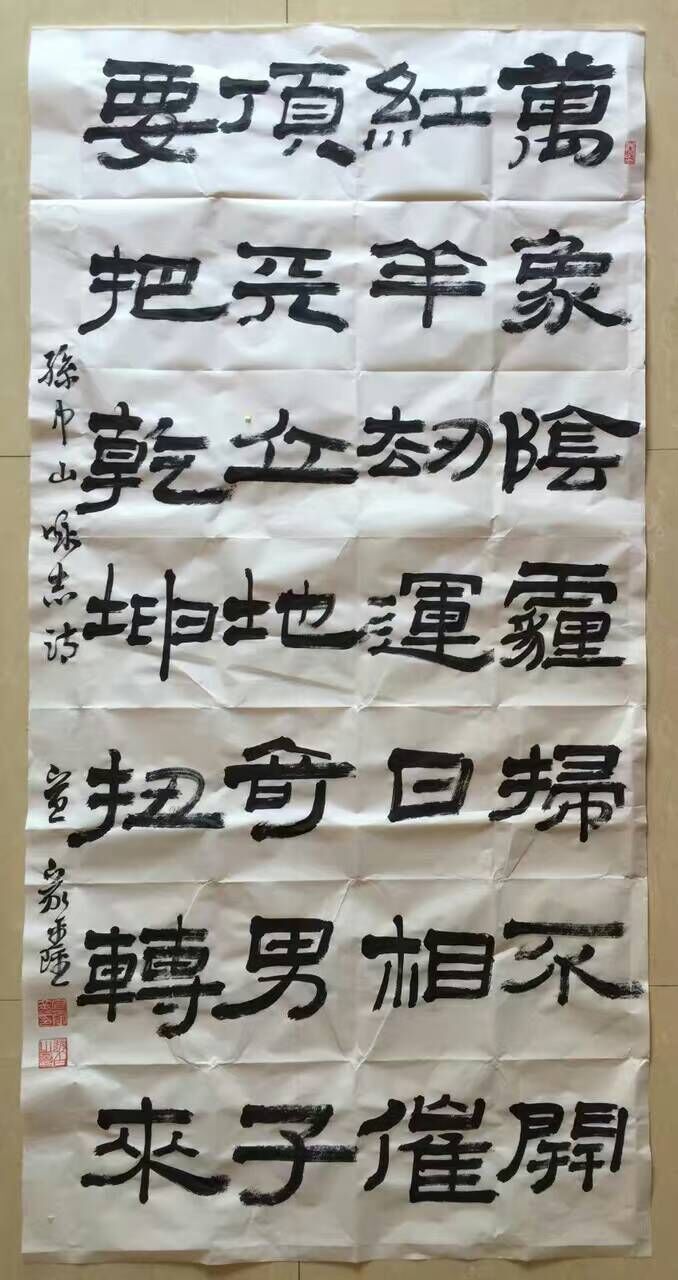 萬象陰霾掃不開
紅羊刧運日相催
頂天立地奇男子
要把乾坤扭轉來
孫中山咏志詩